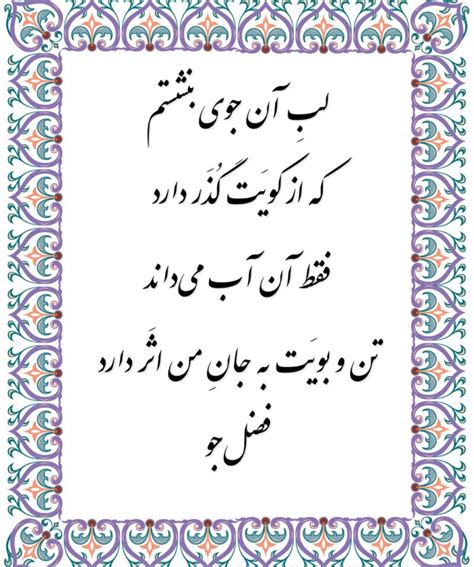 لبِ آن جوی بنشستم
که از کویَت گُذَر دارد
فقط آن آب می‌داند
تن و بویَت به جانِ من اثَر دارد
فضل جو